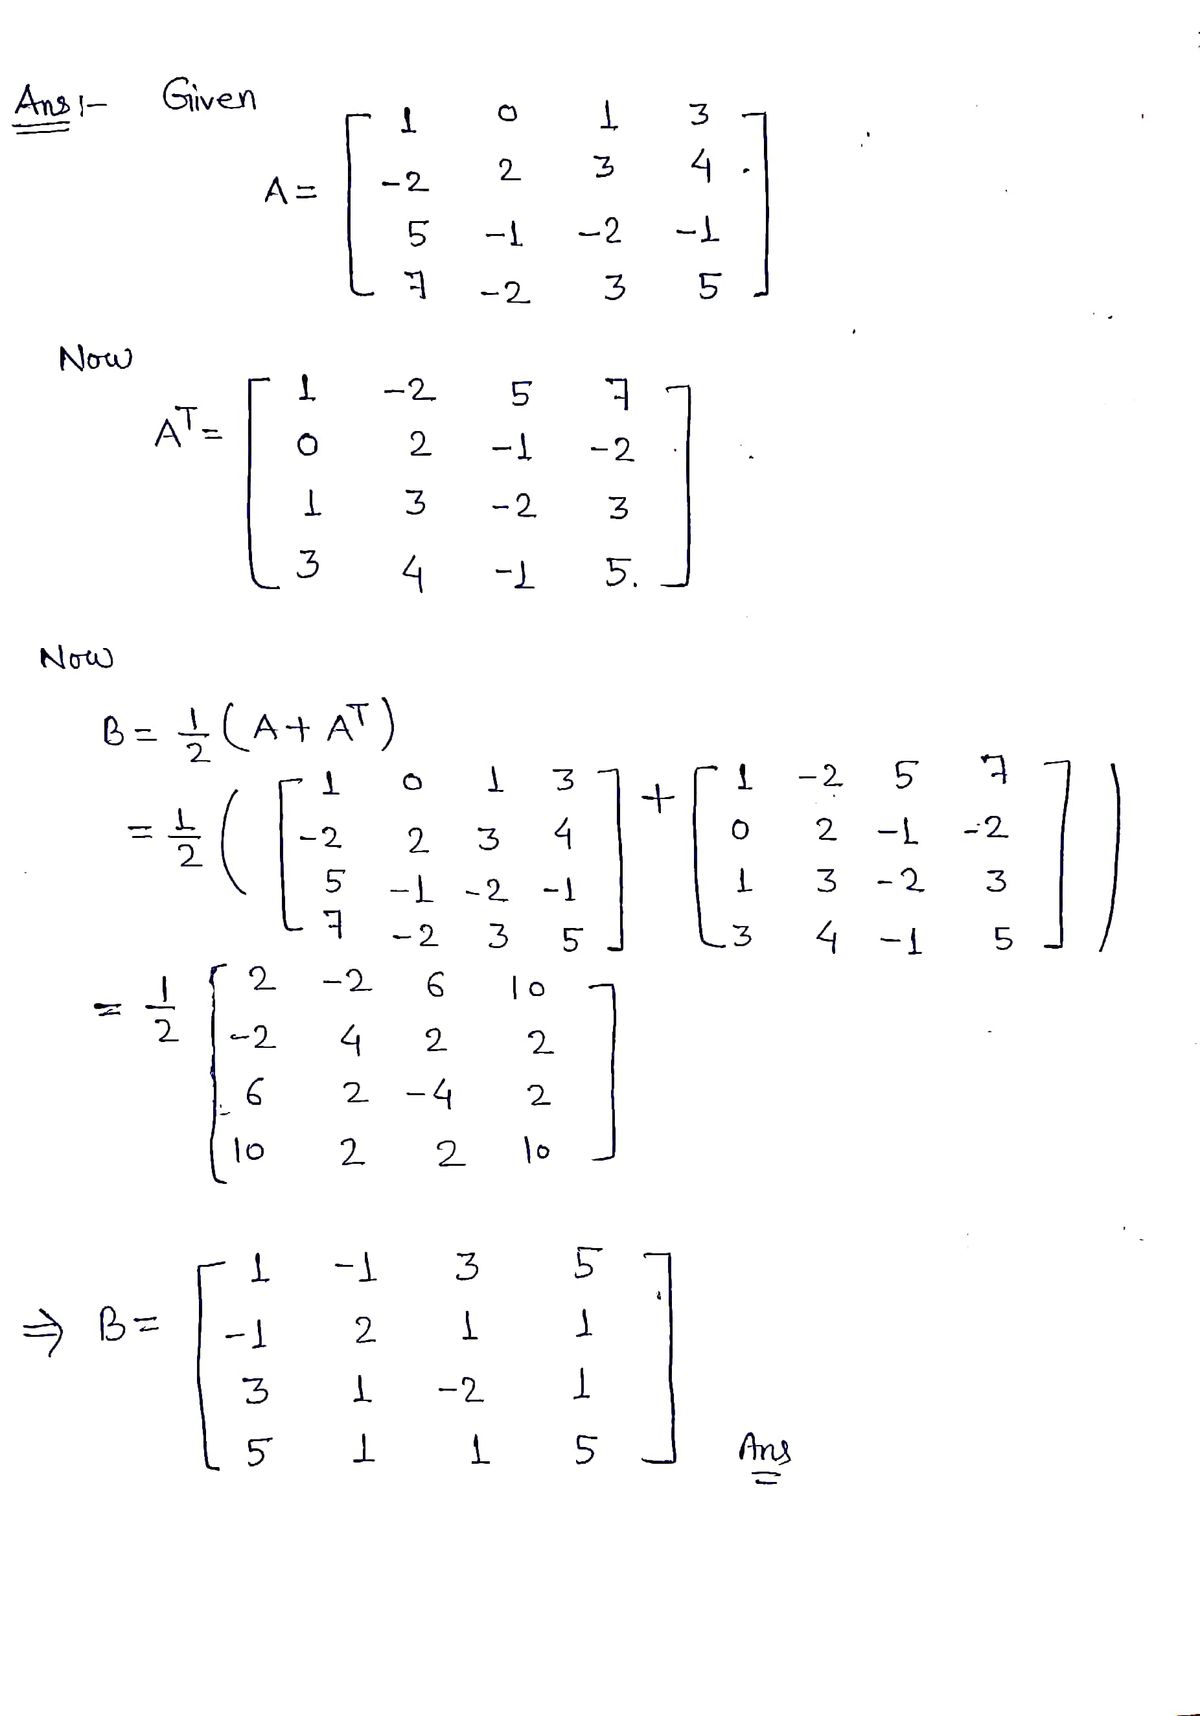 Ans :- Given
A = [ 1 0 1 3
-2 2 3 4
5 -1 -2 -1
7 -2 3 5 ]
Now
Aᵀ = [ 1 -2 5 7
0 2 -1 -2
1 3 -2 3
3 4 -1 5. ]
Now
B = 1/2 (A + Aᵀ)
= 1/2 ( [ 1 0 1 3
-2 2 3 4
5 -1 -2 -1
7 -2 3 5 ] + [ 1 -2 5 7
0 2 -1 -2
1 3 -2 3
3 4 -1 5 ] )
= 1/2 [ 2 -2 6 10
-2 4 2 2
6 2 -4 2
10 2 2 10 ]
⇒ B = [ 1 -1 3 5
-1 2 1 1
3 1 -2 1
5 1 1 5 ] Ans